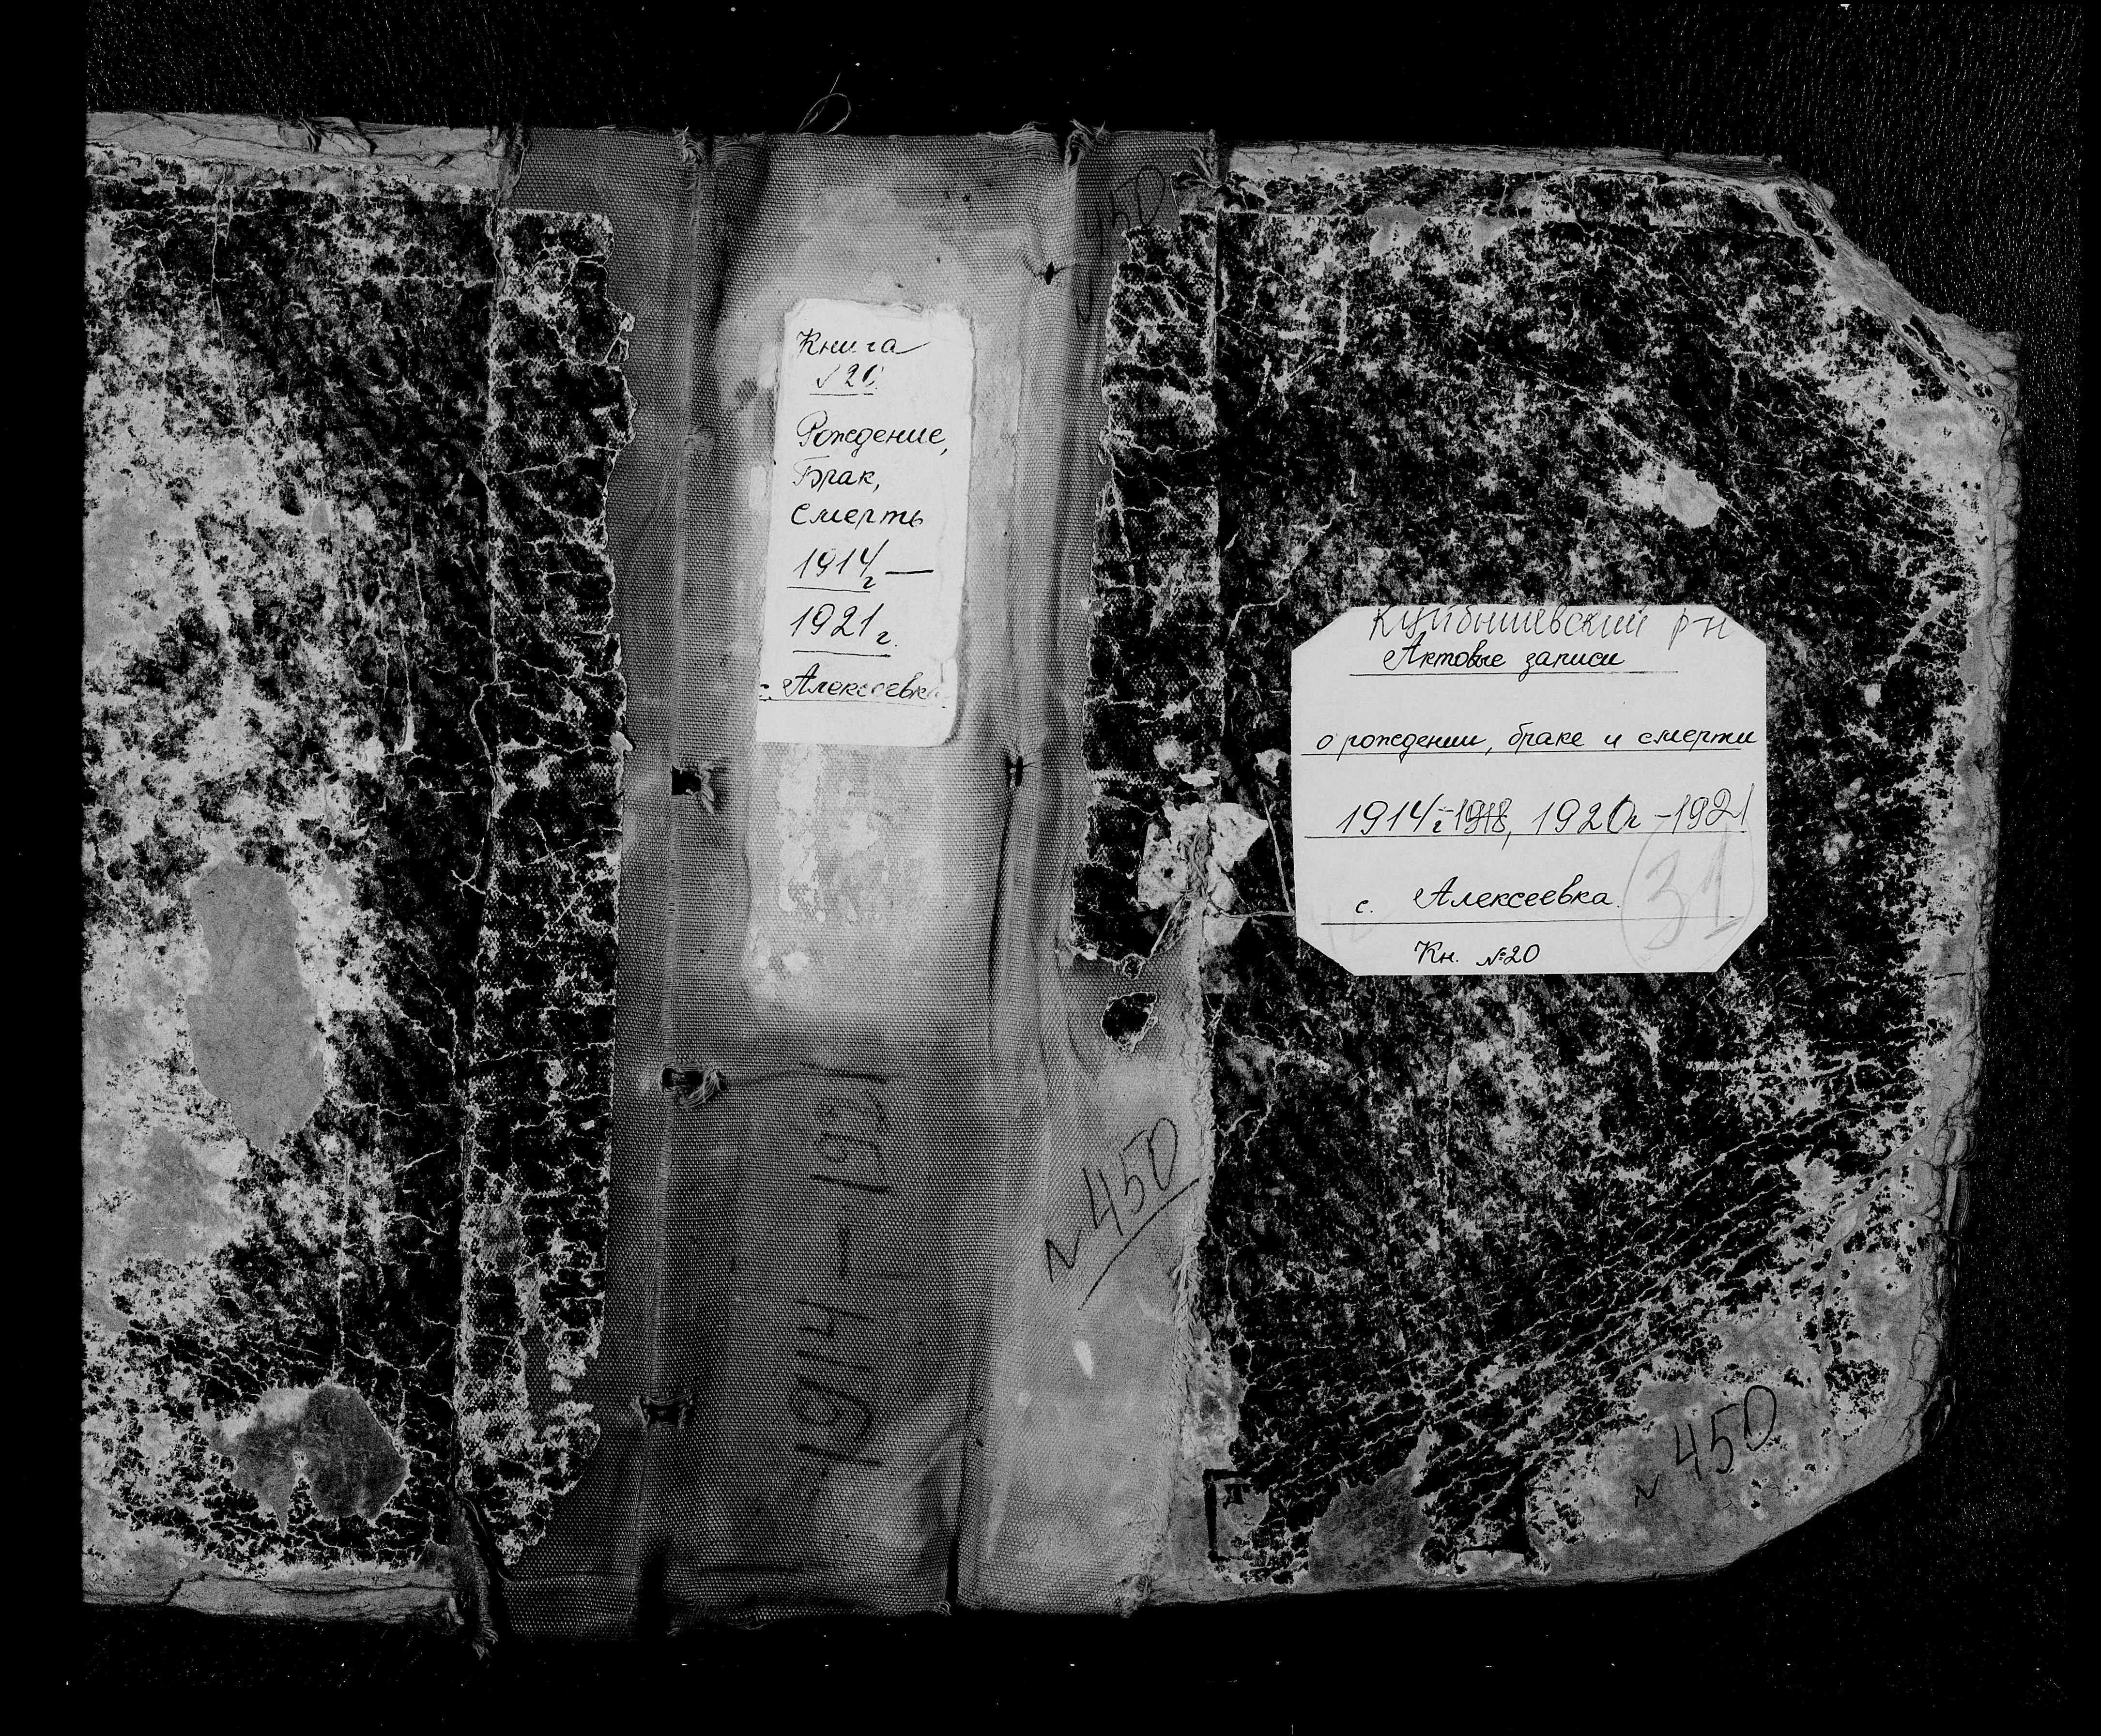 Книга
№20
Рождение,
Брак,
Смерть
1914г —
1921г.
с. Алексеевка
1914—1921
450
№450
Куйбышевский р-н
Актовые записи
о рождении, браке и смерти
1914г-1918, 1920г-1921
с. Алексеевка.
31
Кн. №20
№450